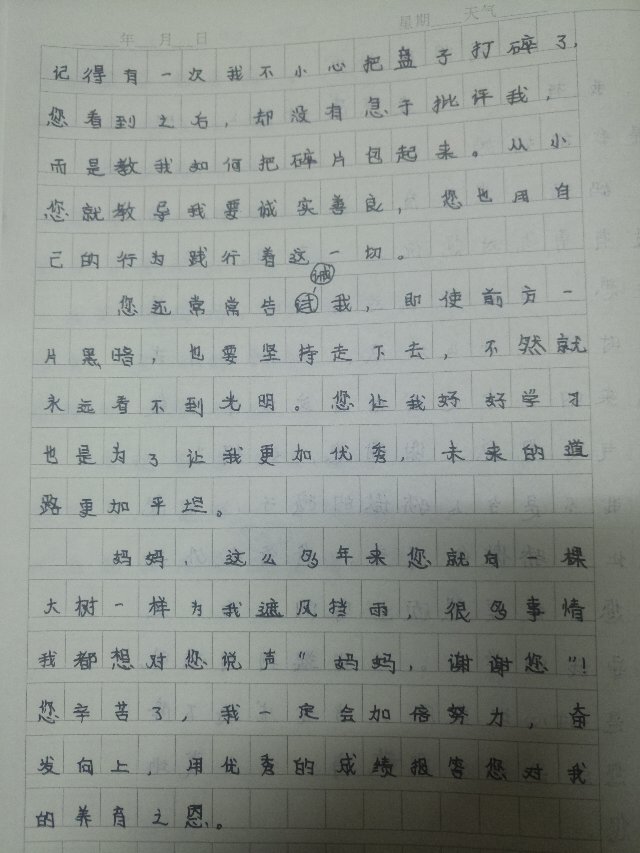 年 月 日 星期 天气
记得有一次我不小心把盘子打碎了,
您看到之后,却没有急于批评我,
而是教我如何把碎片包起来。从小
您就教导我要诚实善良,您也用自
己的行为践行着这一切。
诫
您还常常告我,即使前方一
片黑暗,也要坚持走下去,不然就
永远看不到光明。您让我好好学习
也是为了让我更加优秀,未来的道
路更加平坦。
妈妈、这么多年来您就向一棵
大树一样为我遮风挡雨,很多事情
我都想对您说声"妈妈,谢谢您"!
您辛苦了,我一定会加倍努力,奋
发向上,用优秀的成绩报答您对我
的养育之恩。